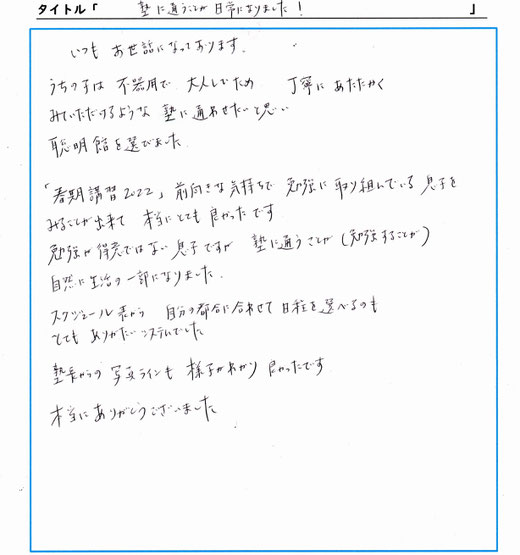 タイトル「 塾に通うことが日常になりました! 」
いつもお世話になっております。
うちの子は 不器用で 大人しいため 丁寧にあたたかく
みていただけるような 塾に通わせたいと思い
聡明館を選びました
「春期講習2022」前向きな気持ちで 勉強に取り組んでいる 息子を
みることが出来て 本当にとても 良かったです
勉強が得意ではない息子ですが 塾に通うことが(勉強することが)
自然に生活の一部になりました。
スケジュール表から 自分の都合に合わせて日程を選べるのも
とても ありがたいシステムでした
塾長からの 写真ラインも 様子がわかり 良かったです
本当にありがとうございました